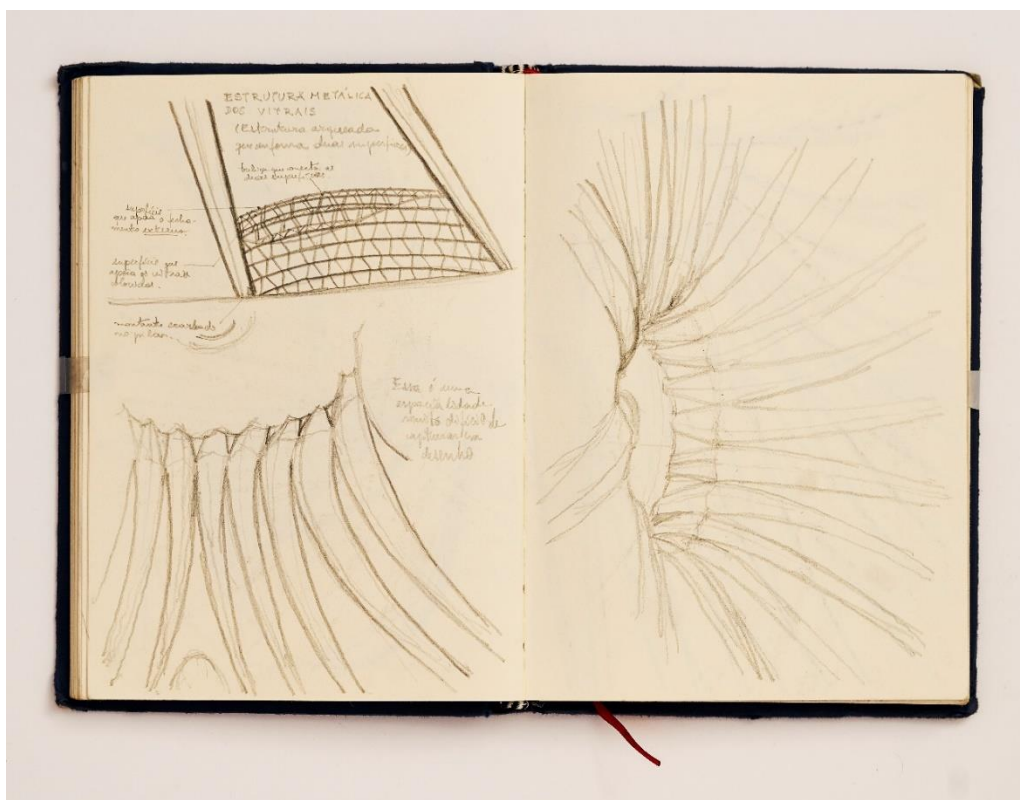 ESTRUTURA METÁLICA
DOS VITRAIS
(Estrutura arqueada
que enforma duas superfícies)
que conecta as
duas superfícies
superfície
que apoia o fecha-
mento externo.
superfície que
apoia os vitrais
coloridos.
no pilar
Essa é uma
espacialidade
muito difícil de
capturar em
desenho